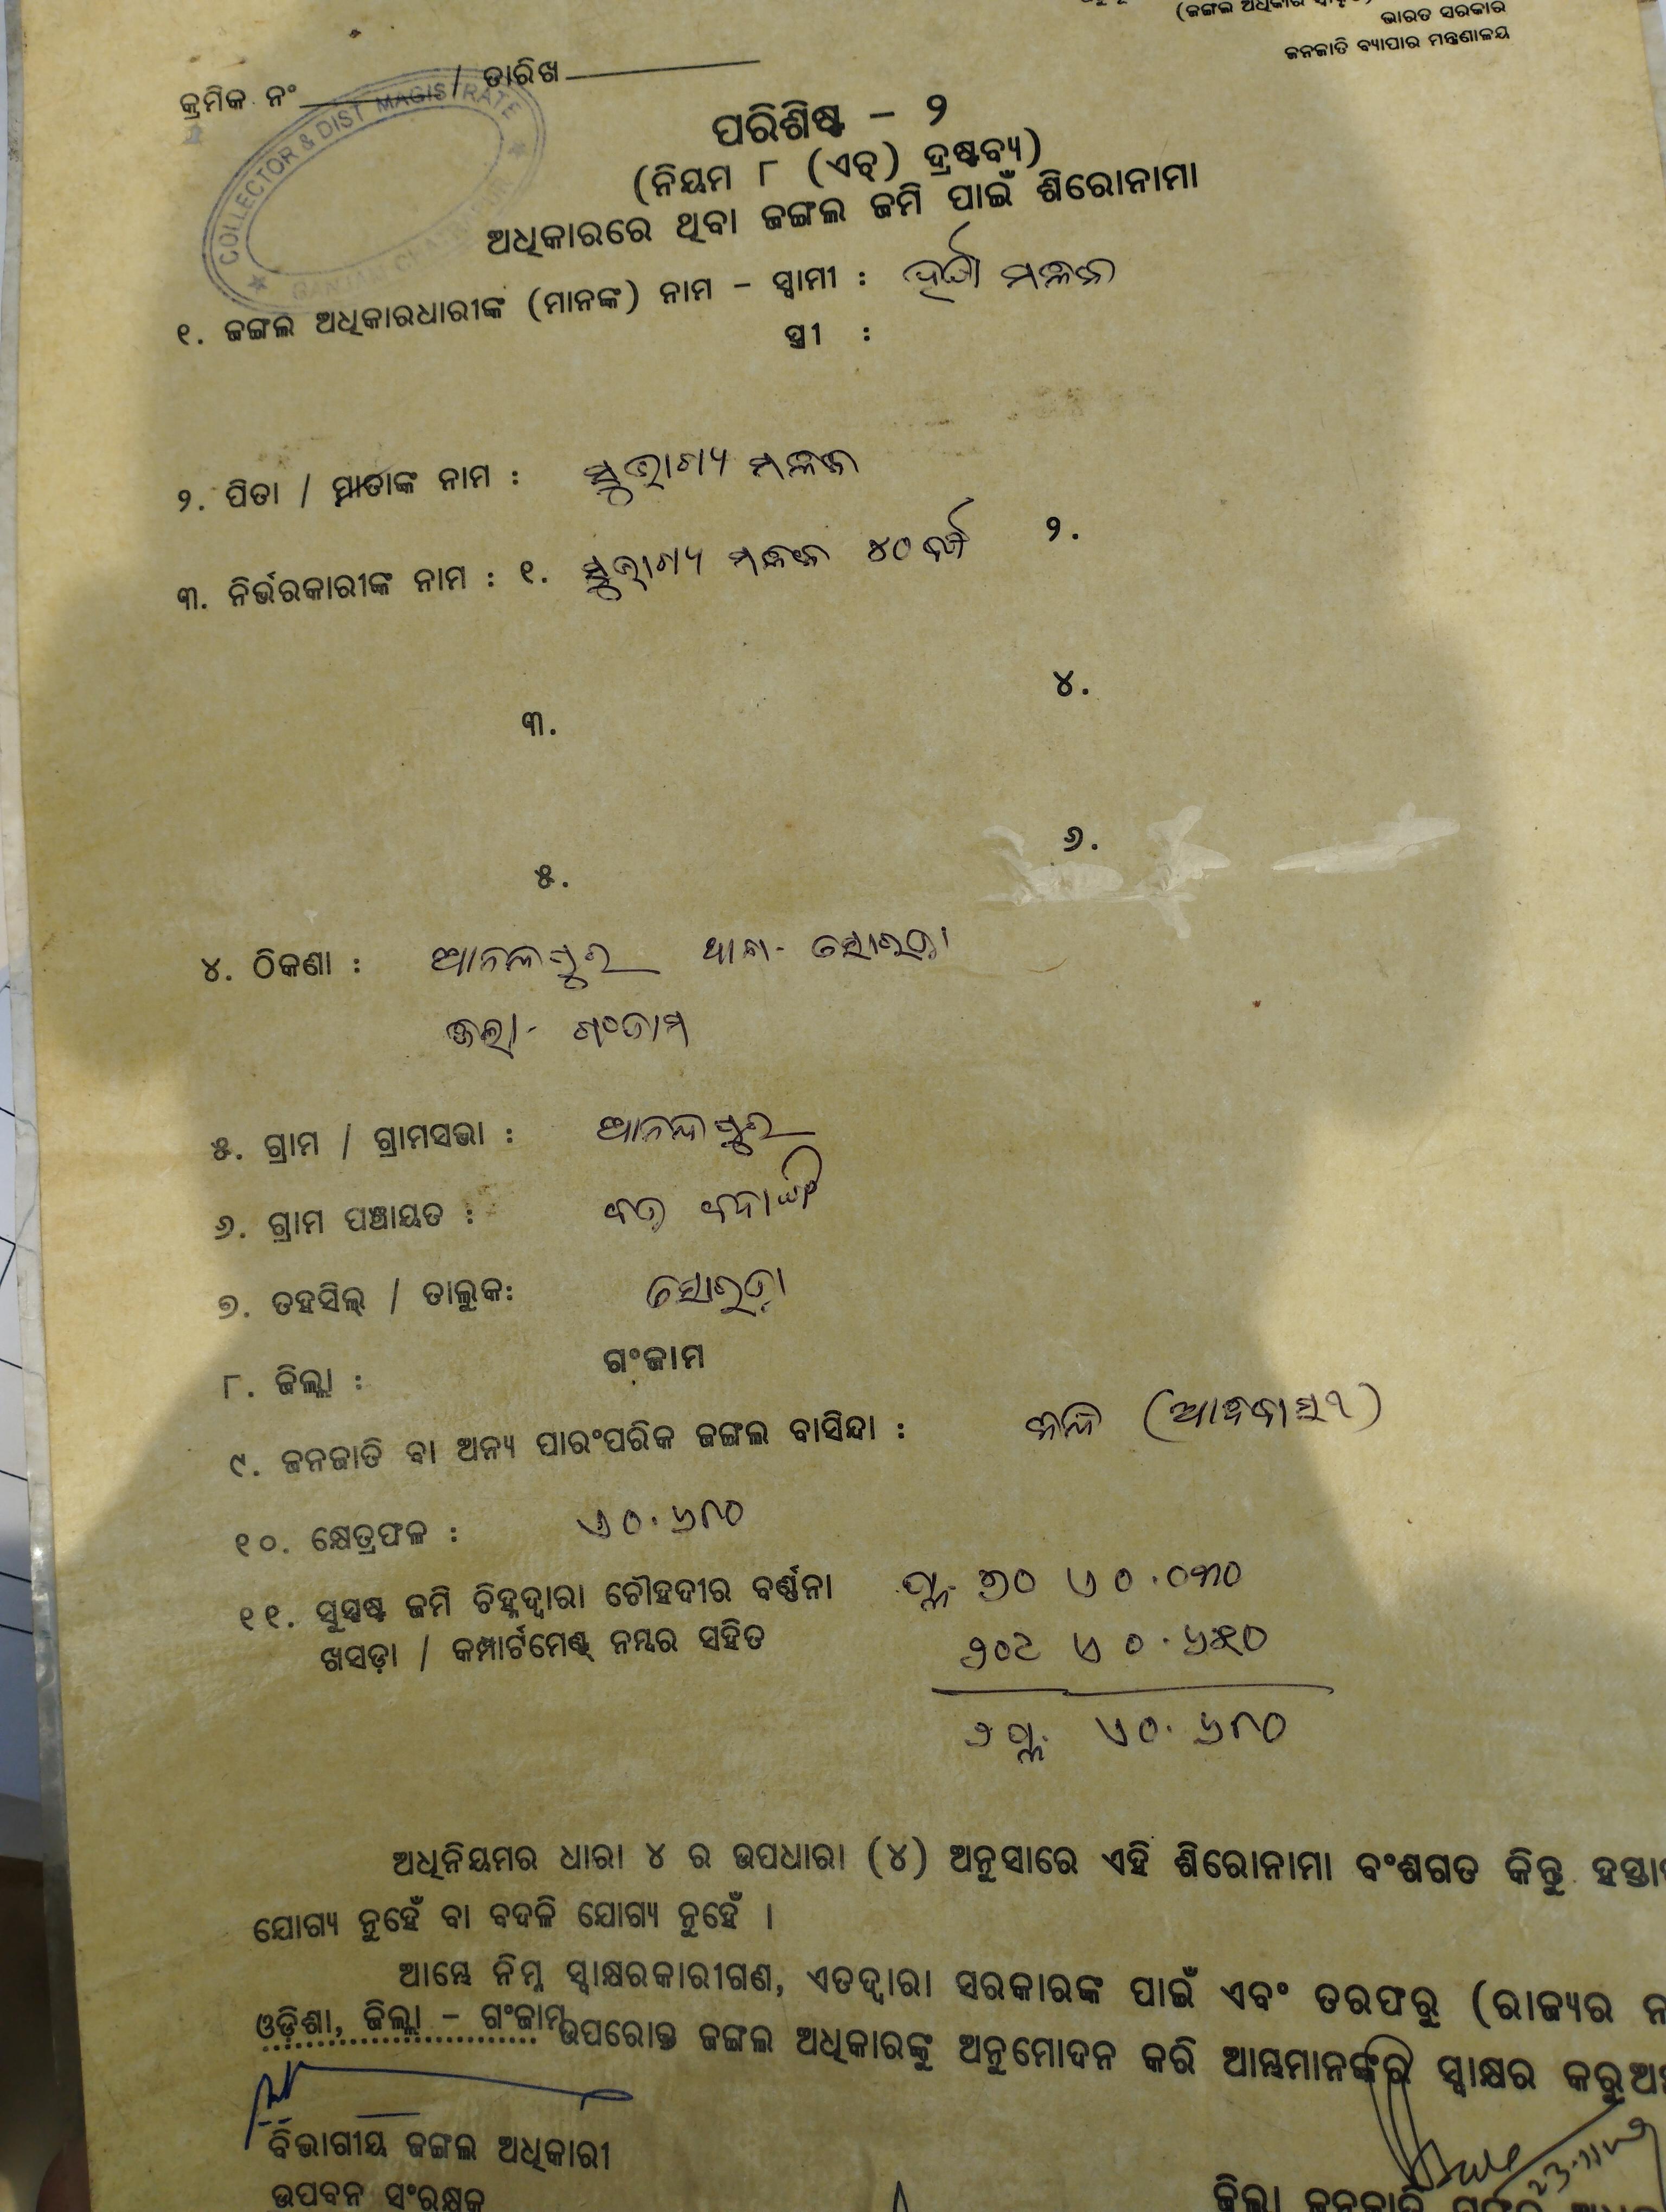 (ଜଙ୍ଗଲ ଅଧିକାର
ଭାରତ ସରକାର
ଜନଜାତି ବ୍ୟାପାର ମନ୍ତ୍ରଣାଳୟ
କ୍ରମିକ ନଂ / ତାରିଖ
COLLECTOR & DIST MAGISTRATE
ପରିଶିଷ୍ଟ – ୨
(ନିୟମ ୮ (ଏଚ୍) ଦ୍ରଷ୍ଟବ୍ୟ)
ଅଧିକାରରେ ଥିବା ଜଙ୍ଗଲ ଜମି ପାଇଁ ଶିରୋନାମା
୧. ଜଙ୍ଗଲ ଅଧିକାରଧାରୀଙ୍କ (ମାନଙ୍କ) ନାମ – ସ୍ୱାମୀ :
ସ୍ତ୍ରୀ :
୨. ପିତା / ମାତାଙ୍କ ନାମ :
୩. ନିର୍ଭରକାରୀଙ୍କ ନାମ : ୧. ୪୦ ବର୍ଷ ୨.
୩. ୪.
୫. ୬.
୪. ଠିକଣା : ଆନନ୍ଦପୁର ଥାନା- ସୋରଡ଼ା
ଜିଲ୍ଲା- ଗଂଜାମ
୫. ଗ୍ରାମ / ଗ୍ରାମସଭା : ଆନନ୍ଦପୁର
୬. ଗ୍ରାମ ପଞ୍ଚାୟତ :
୭. ତହସିଲ୍ / ତାଲୁକ: ସୋରଡ଼ା
୮. ଜିଲ୍ଲା : ଗଂଜାମ
୯. ଜନଜାତି ବା ଅନ୍ୟ ପାରଂପରିକ ଜଙ୍ଗଲ ବାସିନ୍ଦା : (ଆଦିବାସୀ)
୧୦. କ୍ଷେତ୍ରଫଳ : ଏ ୦.୬୮୦
୧୧. ସୁସ୍ପଷ୍ଟ ଜମି ଚିହ୍ନଦ୍ୱାରା ଚୌହଦୀର ବର୍ଣ୍ଣନା ପ୍ଲ. ଏ ୦.୦୩୦
ଖସଡ଼ା / କମ୍ପାର୍ଟମେଣ୍ଟ୍ ନମ୍ବର ସହିତ ଏ ୦.୬୫୦
୨ ପ୍ଲ. ଏ ୦.୬୮୦
ଅଧିନିୟମର ଧାରା ୪ ର ଉପଧାରା (୪) ଅନୁସାରେ ଏହି ଶିରୋନାମା ବଂଶଗତ କିନ୍ତୁ
ଯୋଗ୍ୟ ନୁହେଁ ବା ବଦଳି ଯୋଗ୍ୟ ନୁହେଁ ।
ଆମ୍ଭେ ନିମ୍ନ ସ୍ୱାକ୍ଷରକାରୀଗଣ, ଏତଦ୍ୱାରା ସରକାରଙ୍କ ପାଇଁ ଏବଂ ତରଫରୁ (ରାଜ୍ୟର
ଓଡ଼ିଶା, ଜିଲ୍ଲା – ଗଂଜାମ ଉପରୋକ୍ତ ଜଙ୍ଗଲ ଅଧିକାରଙ୍କୁ ଅନୁମୋଦନ କରି ଆମ୍ଭମାନଙ୍କର ସ୍ୱାକ୍ଷର
ବିଭାଗୀୟ ଜଙ୍ଗଲ ଅଧିକାରୀ
ଉପବନ ସଂରକ୍ଷକ
ଜିଲ୍ଲା ଜନଜାତି